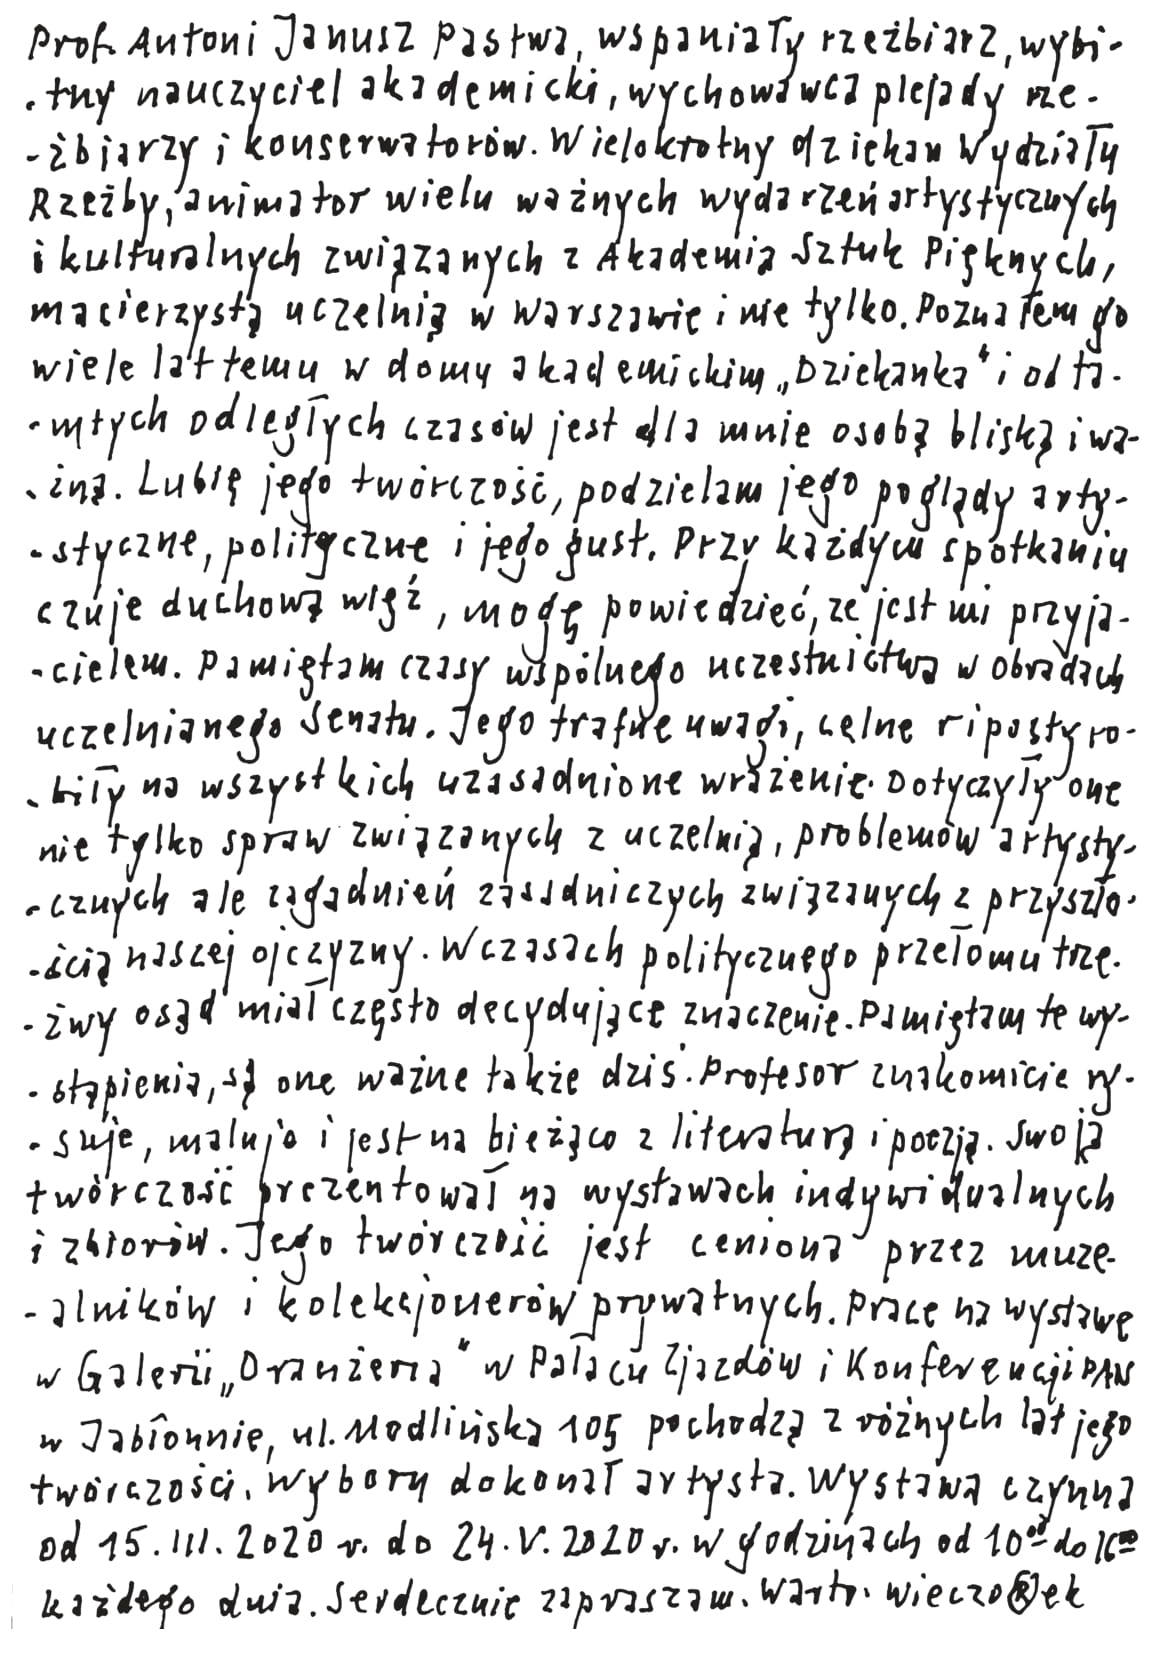 Prof. Antoni Janusz Pastwa, wspaniały rzeźbiarz, wybi-
-tny nauczyciel akademicki, wychowawca plejady rze-
-źbiarzy i konserwatorów. Wielokrotny dziekan Wydziału
Rzeźby, animator wielu ważnych wydarzeń artystycznych
i kulturalnych związanych z Akademią Sztuk Pięknych,
macierzystą uczelnią w Warszawie i nie tylko. Poznałem go
wiele lat temu w domu akademickim „Dziekanka" i od ta-
-mtych odległych czasów jest dla mnie osobą bliską i wa-
-żną. Lubię jego twórczość, podzielam jego poglądy arty-
-styczne, polityczne i jego gust. Przy każdym spotkaniu
czuje duchową więź, mogę powiedzieć, że jest mi przyja-
-cielem. Pamiętam czasy wspólnego uczestnictwa w obradach
uczelnianego Senatu. Jego trafne uwagi, celne riposty ro-
-biły na wszystkich uzasadnione wrażenie. Dotyczyły one
nie tylko spraw związanych z uczelnią, problemów artysty-
-cznych ale zagadnień zasadniczych związanych z przyszło-
-ścią naszej ojczyzny. W czasach politycznego przełomu trze-
-źwy osąd miał często decydujące znaczenie. Pamiętam te wy-
-stąpienia, są one ważne także dziś. Profesor znakomicie ry-
-suje, maluje i jest na bieżąco z literaturą i poezją. Swoją
twórczość prezentował na wystawach indywidualnych
i zbiorów. Jego twórczość jest ceniona przez muze-
-alników i kolekcjonerów prywatnych. Prace na wystawę
w Galerii „Oranżeria" w Pałacu Zjazdów i Konferencji PAN
w Jabłonnie, ul. Modlińska 105 pochodzą z różnych lat jego
twórczości. Wyboru dokonał artysta. Wystawa czynna
od 15.III.2020 r. do 24.V.2020 r. w godzinach od 10⁰⁰ do 16⁰⁰
każdego dnia. Serdecznie zapraszam. Wieczo®ek